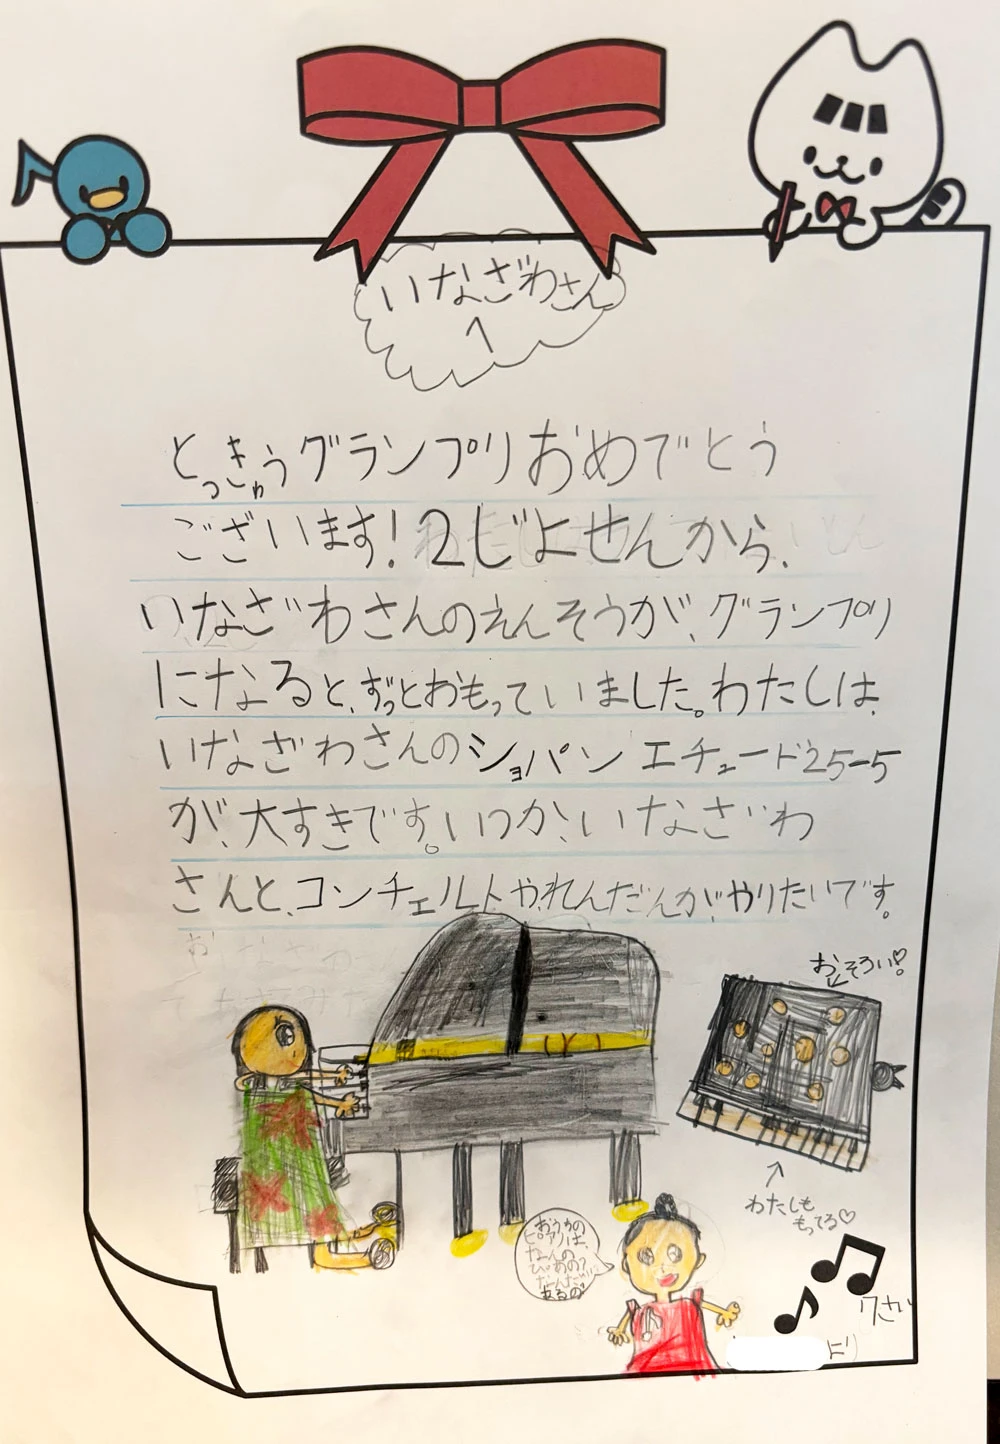 いなざわさん
へ
とっきゅうグランプリおめでとう
ございます!2じよせんから、
いなざわさんのえんそうが、グランプリ
になると、ずっとおもっていました。わたしは、
いなざわさんのショパン エチュード25-5
が、大すきです。いつか、いなざわ
さんと、コンチェルトや、れんだんが、やりたいです。
おそろい!
わたしも
もってる♡
おうちの
ピアノは、
なんの
ぴあの?
なんだい
あるの?
7さい
より